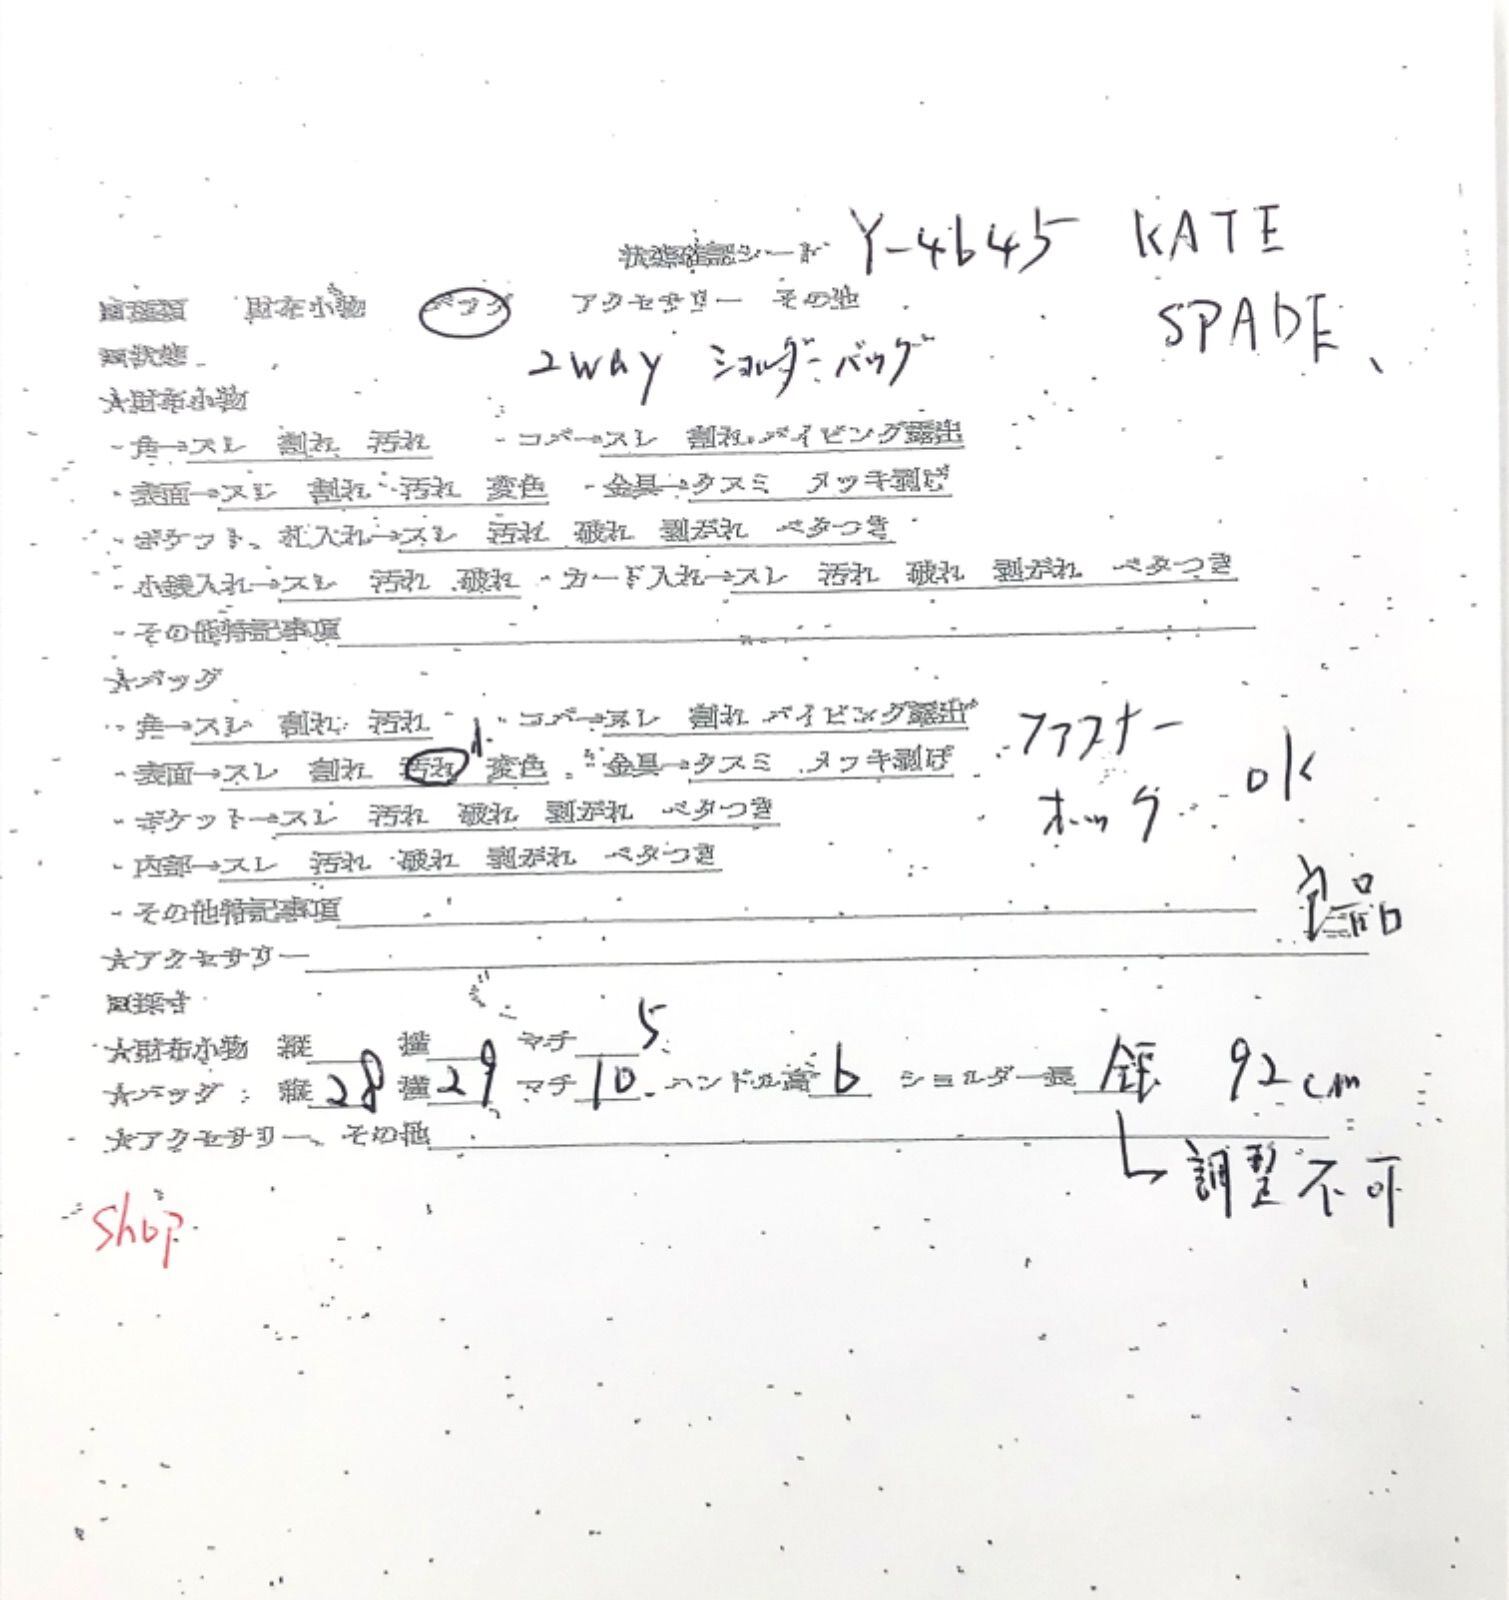 状態確認シート Y-4645 KATE SPADE、
■種類 財布小物 バッグ アクセサリー その他
■状態 2way ショルダーバッグ
★財布小物
・角→スレ 割れ 汚れ ・コバ→スレ 割れ パイピング露出
・表面→スレ 割れ 汚れ 変色 ・金具→クスミ メッキ剥げ
・ポケット、札入れ→スレ 汚れ 破れ 剥がれ ベタつき
・小銭入れ→スレ 汚れ 破れ ・カード入れ→スレ 汚れ 破れ 剥がれ ベタつき
・その他特記事項
★バッグ
・角→スレ 割れ 汚れ ・コバ→スレ 割れ パイピング露出
・表面→スレ 割れ 汚れ 小 変色 ・金具→クスミ メッキ剥げ
ファスナー
ホック ok
・ポケット→スレ 汚れ 破れ 剥がれ ベタつき
・内部→スレ 汚れ 破れ 剥がれ ベタつき
・その他特記事項
良品
★アクセサリー
■採寸
★財布小物 縦 横 マチ 5
★バッグ：縦 28 横 29 マチ 10 ハンドル高 6 ショルダー長 92cm
★アクセサリー、その他
調整不可
Shop